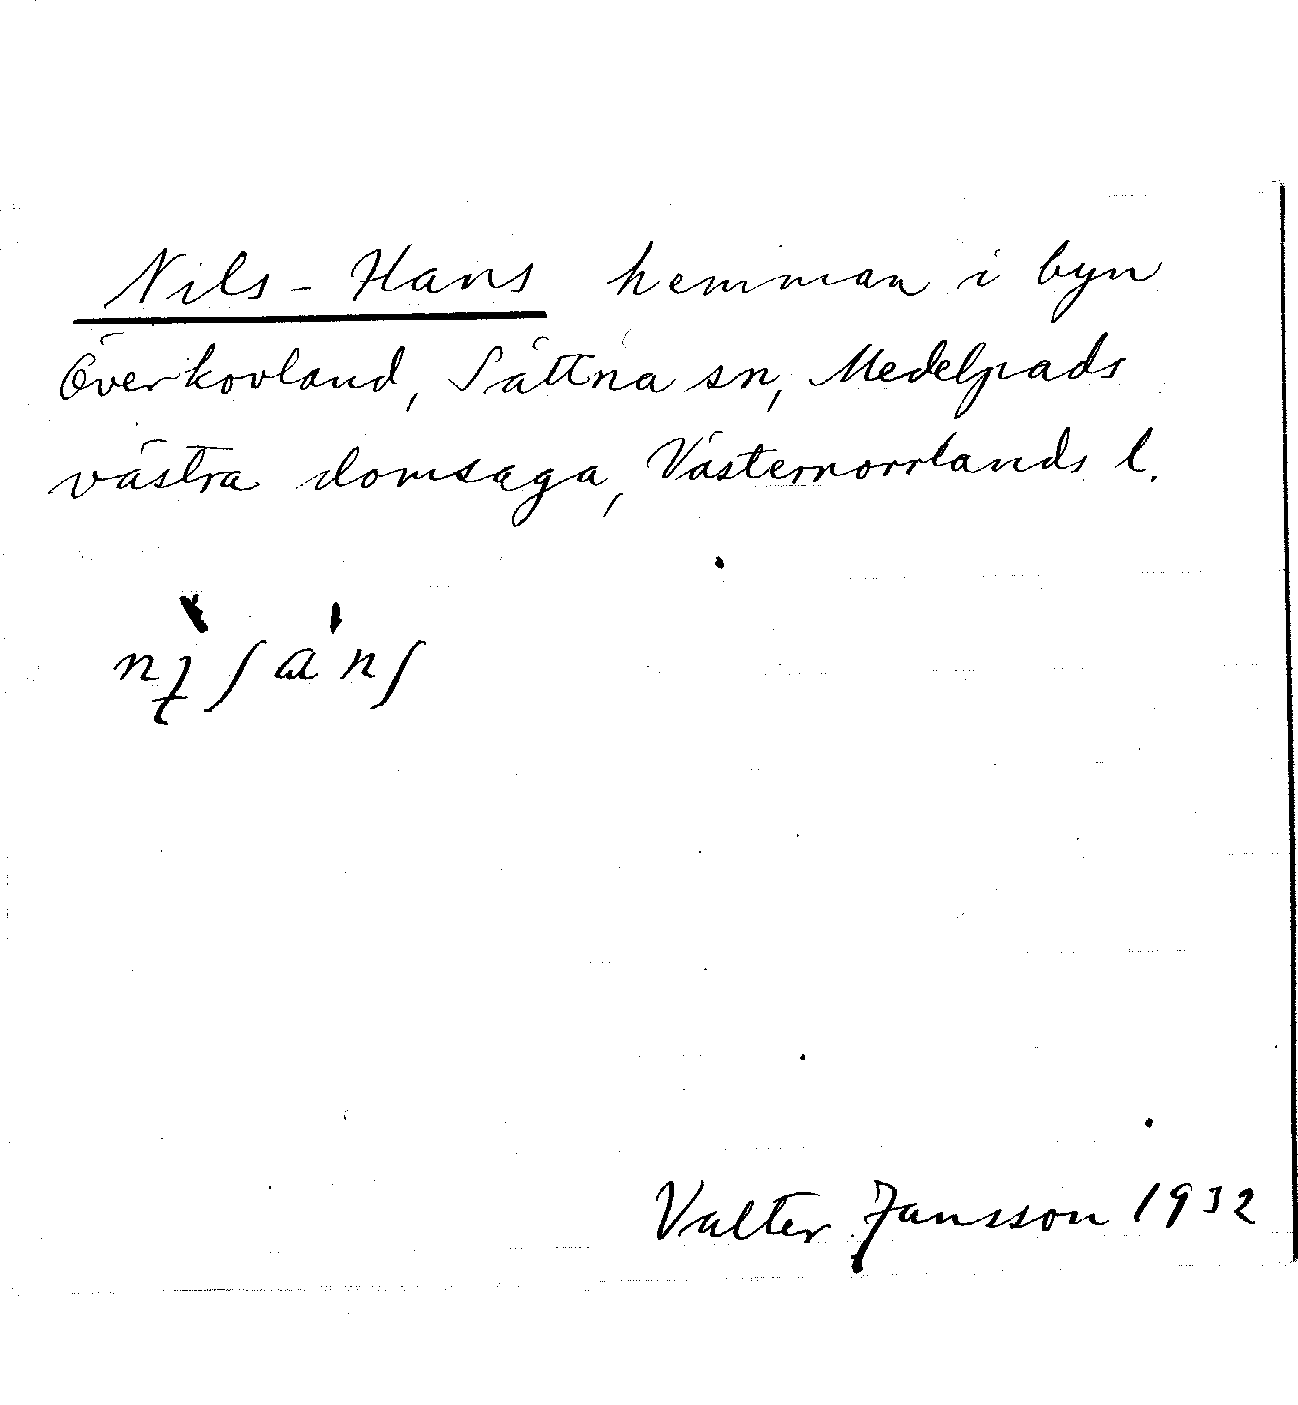 Nils-Hans hemman i byn
Överkovland, Sättna sn, Medelpads
västra domsaga, Västernorrlands l.
Valter Jansson 1932